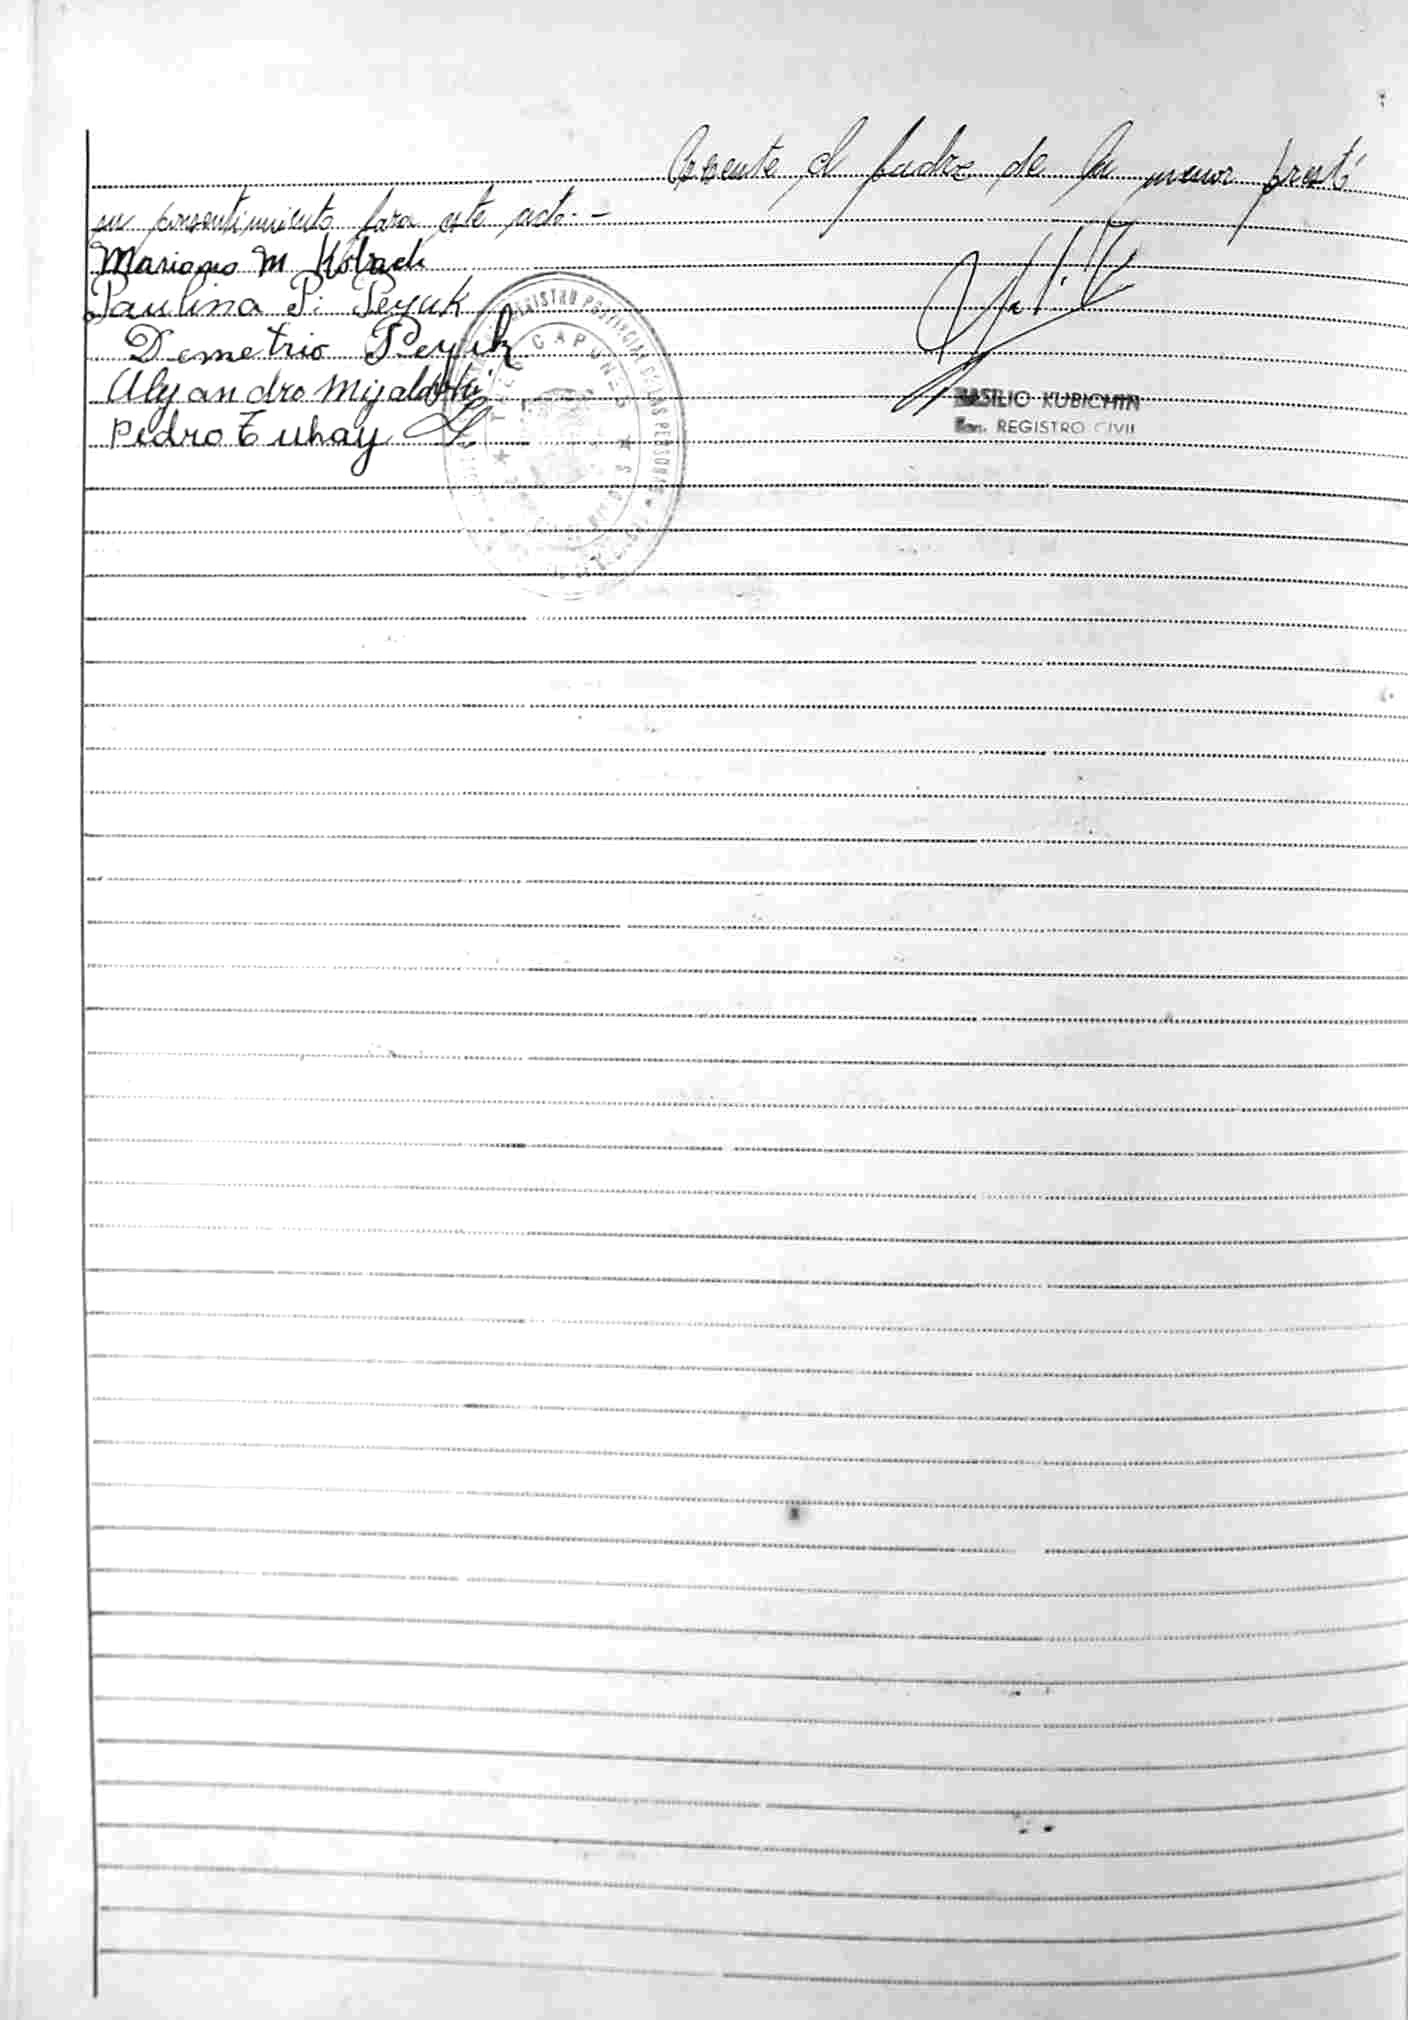 Presente el padre de la menor prestó
su consentimiento para este acto.-
Mariano M Kobach
Paulina P. Peyuk
Demetrio Peyuk
Alejandro Mijalowski
Pedro Tuhay
REGISTRO PROVINCIAL DE LAS PERSONAS
TRES CAPONES
BASILIO KUBICHIN
REGISTRO CIVIL